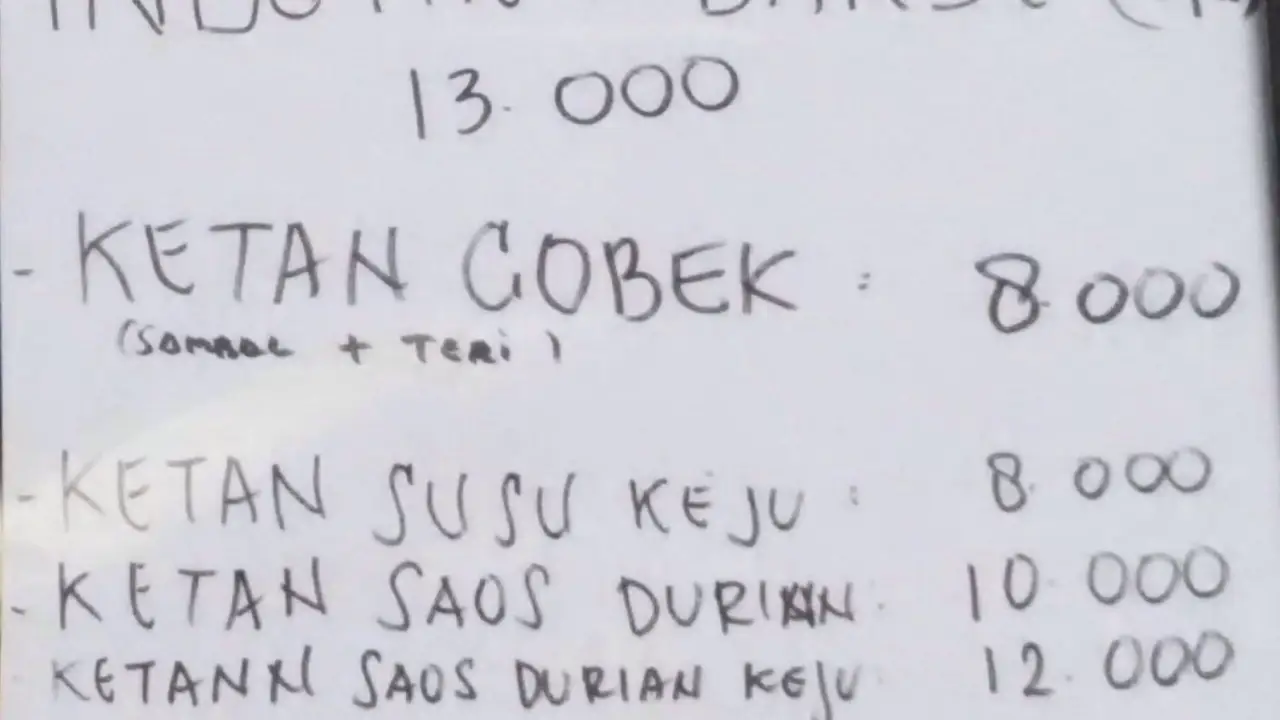 13.000
- KETAN COBEK : 8.000
(SAMBAL + TERI)
- KETAN SUSU KEJU : 8.000
- KETAN SAOS DURIAN : 10.000
KETANN SAOS DURIAN KEJU 12.000